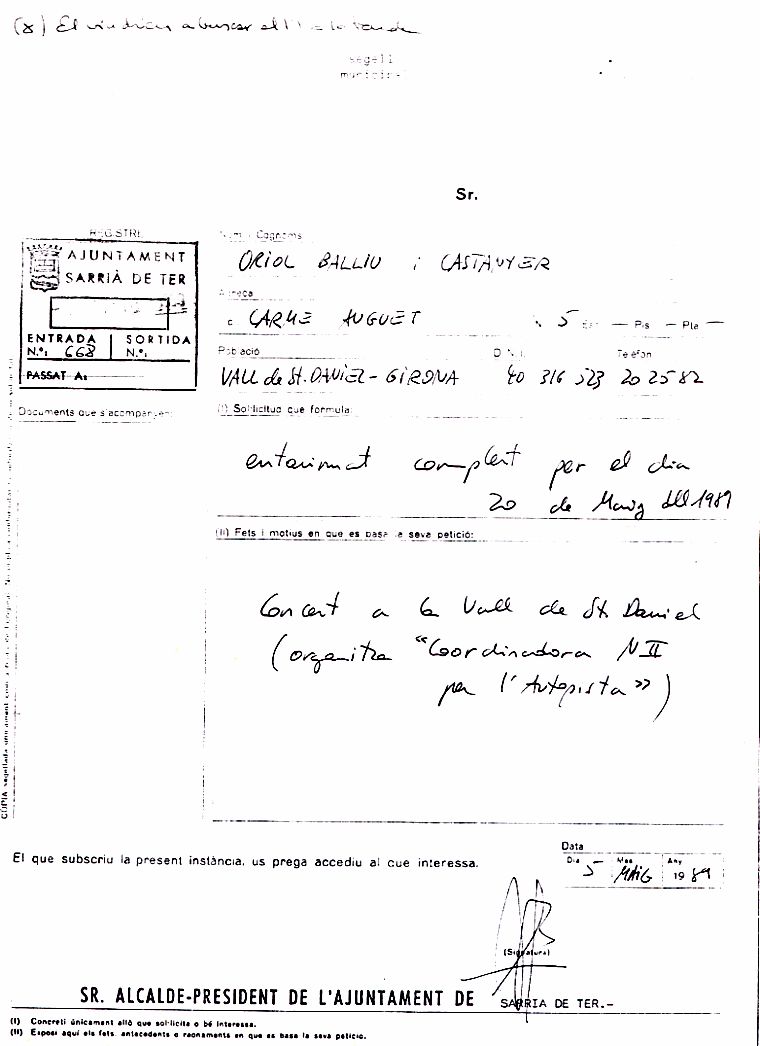 (x) El vindran a buscar el 19 a la tarda
segell
municipal
Sr.
REGISTRE
AJUNTAMENT
SARRIÀ DE TER
ENTRADA
N.º: 668
SORTIDA
N.º:
PASSAT A:
Documents que s'acompanyen:
Nom i Cognoms
ORIOL BALLIU i CASTANYER
Adreça
c. CARME AUGUET
5 Esc. — Pis — Pta —
Població D.N.I. Telèfon
VALL de St. DANIEL - GIRONA 40 316 523 20 25 82
(I) Sol·licitud que formula:
entarimat complert per el dia
20 de Maig del 1989
(II) Fets i motius en que es basa la seva petició:
Concert a la Vall de St. Daniel
(organitza "Coordinadora N II
per l'Autopista")
CÒPIA segellada
El que subscriu la present instància, us prega accediu al que interessa.
Data
Dia Mes Any
5 MAIG 1989
(Signatura)
SR. ALCALDE-PRESIDENT DE L'AJUNTAMENT DE SARRIA DE TER.-
(I) Concreti únicament allò que sol·licita o bé interessa.
(II) Exposi aquí els fets, antecedents o raonaments en que es basa la seva petició.